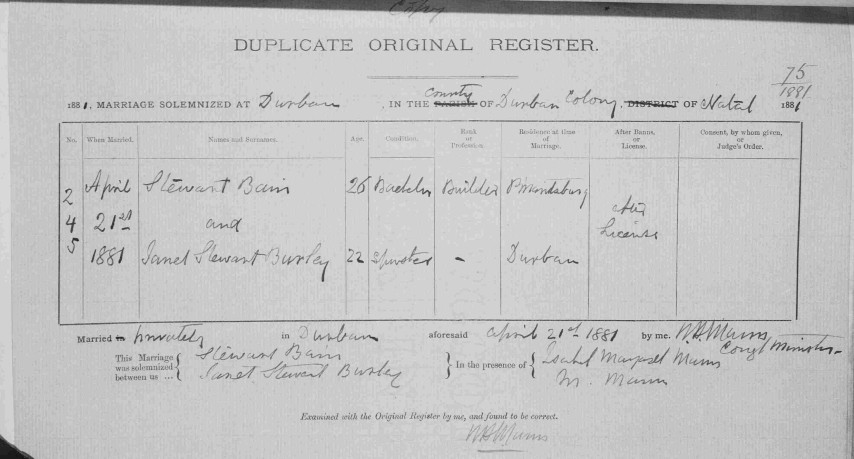 Copy
DUPLICATE ORIGINAL REGISTER.
75
1881
1881, MARRIAGE SOLEMNIZED AT Durban, IN THE PARISH County OF Durban Colony, DISTRICT OF Natal 1881
No. When Married. Names and Surnames. Age. Condition. Rank or Profession. Residence at time of Marriage. After Banns, or License. Consent, by whom given, or Judge's Order.
245 April 21st 1881 Stewart Bain 26 Bachelor Builder PMaritzburg After License
and
Janet Stewart Burley 22 Spinster - Durban
Married in privately in Durban aforesaid April 21st 1881 by me. W H Mann
Congl Minister
This Marriage was solemnized between us ... { Stewart Bain
Janet Stewart Burley
} In the presence of { Isabel Margaret Mann
M. Mann
Examined with the Original Register by me, and found to be correct.
W H Mann